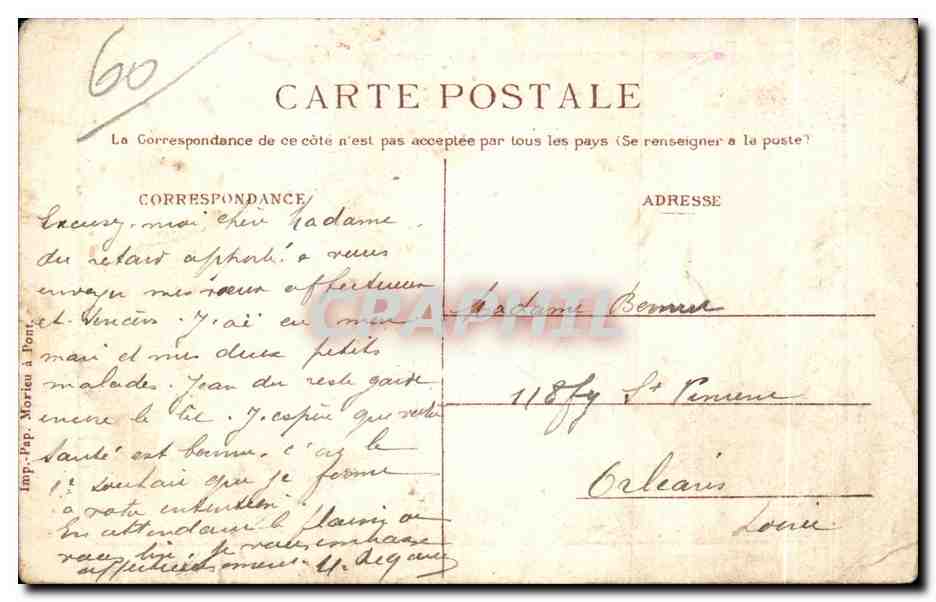 60
CARTE POSTALE
La Correspondance de ce côté n'est pas acceptée par tous les pays (Se renseigner a la poste)
CORRESPONDANCE
Excusez-moi, chère Madame,
du retard apporté à vous
envoyer mes vœux affectueux
et sincères. J'ai eu mon
mari et mes deux petits
malades. Jean du reste garde
encore le lit. J'espère que votre
santé est bonne, c'est le
1er souhait que je forme
à votre intention
En attendant le plaisir de
vous lire, je vous embrasse
affectueusement
ADRESSE
Madame
118 fg St Vincent
Orléans
Loiret
Imp.-Pap. Morieu à Pont.
CRAPHIL